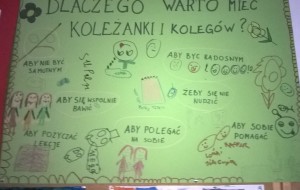 DLACZEGO WARTO MIEĆ
KOLEŻANKI I KOLEGÓW?
ABY NIE BYĆ
SAMOTNYM
ABY BYĆ RADOSNYM
ABY SIĘ WSPÓLNIE
BAWIĆ
ŻEBY SIĘ NIE
NUDZIĆ
ABY POŻYCZAĆ
LEKCJE
ABY POLEGAĆ
NA SOBIE
ABY SOBIE
POMAGAĆ